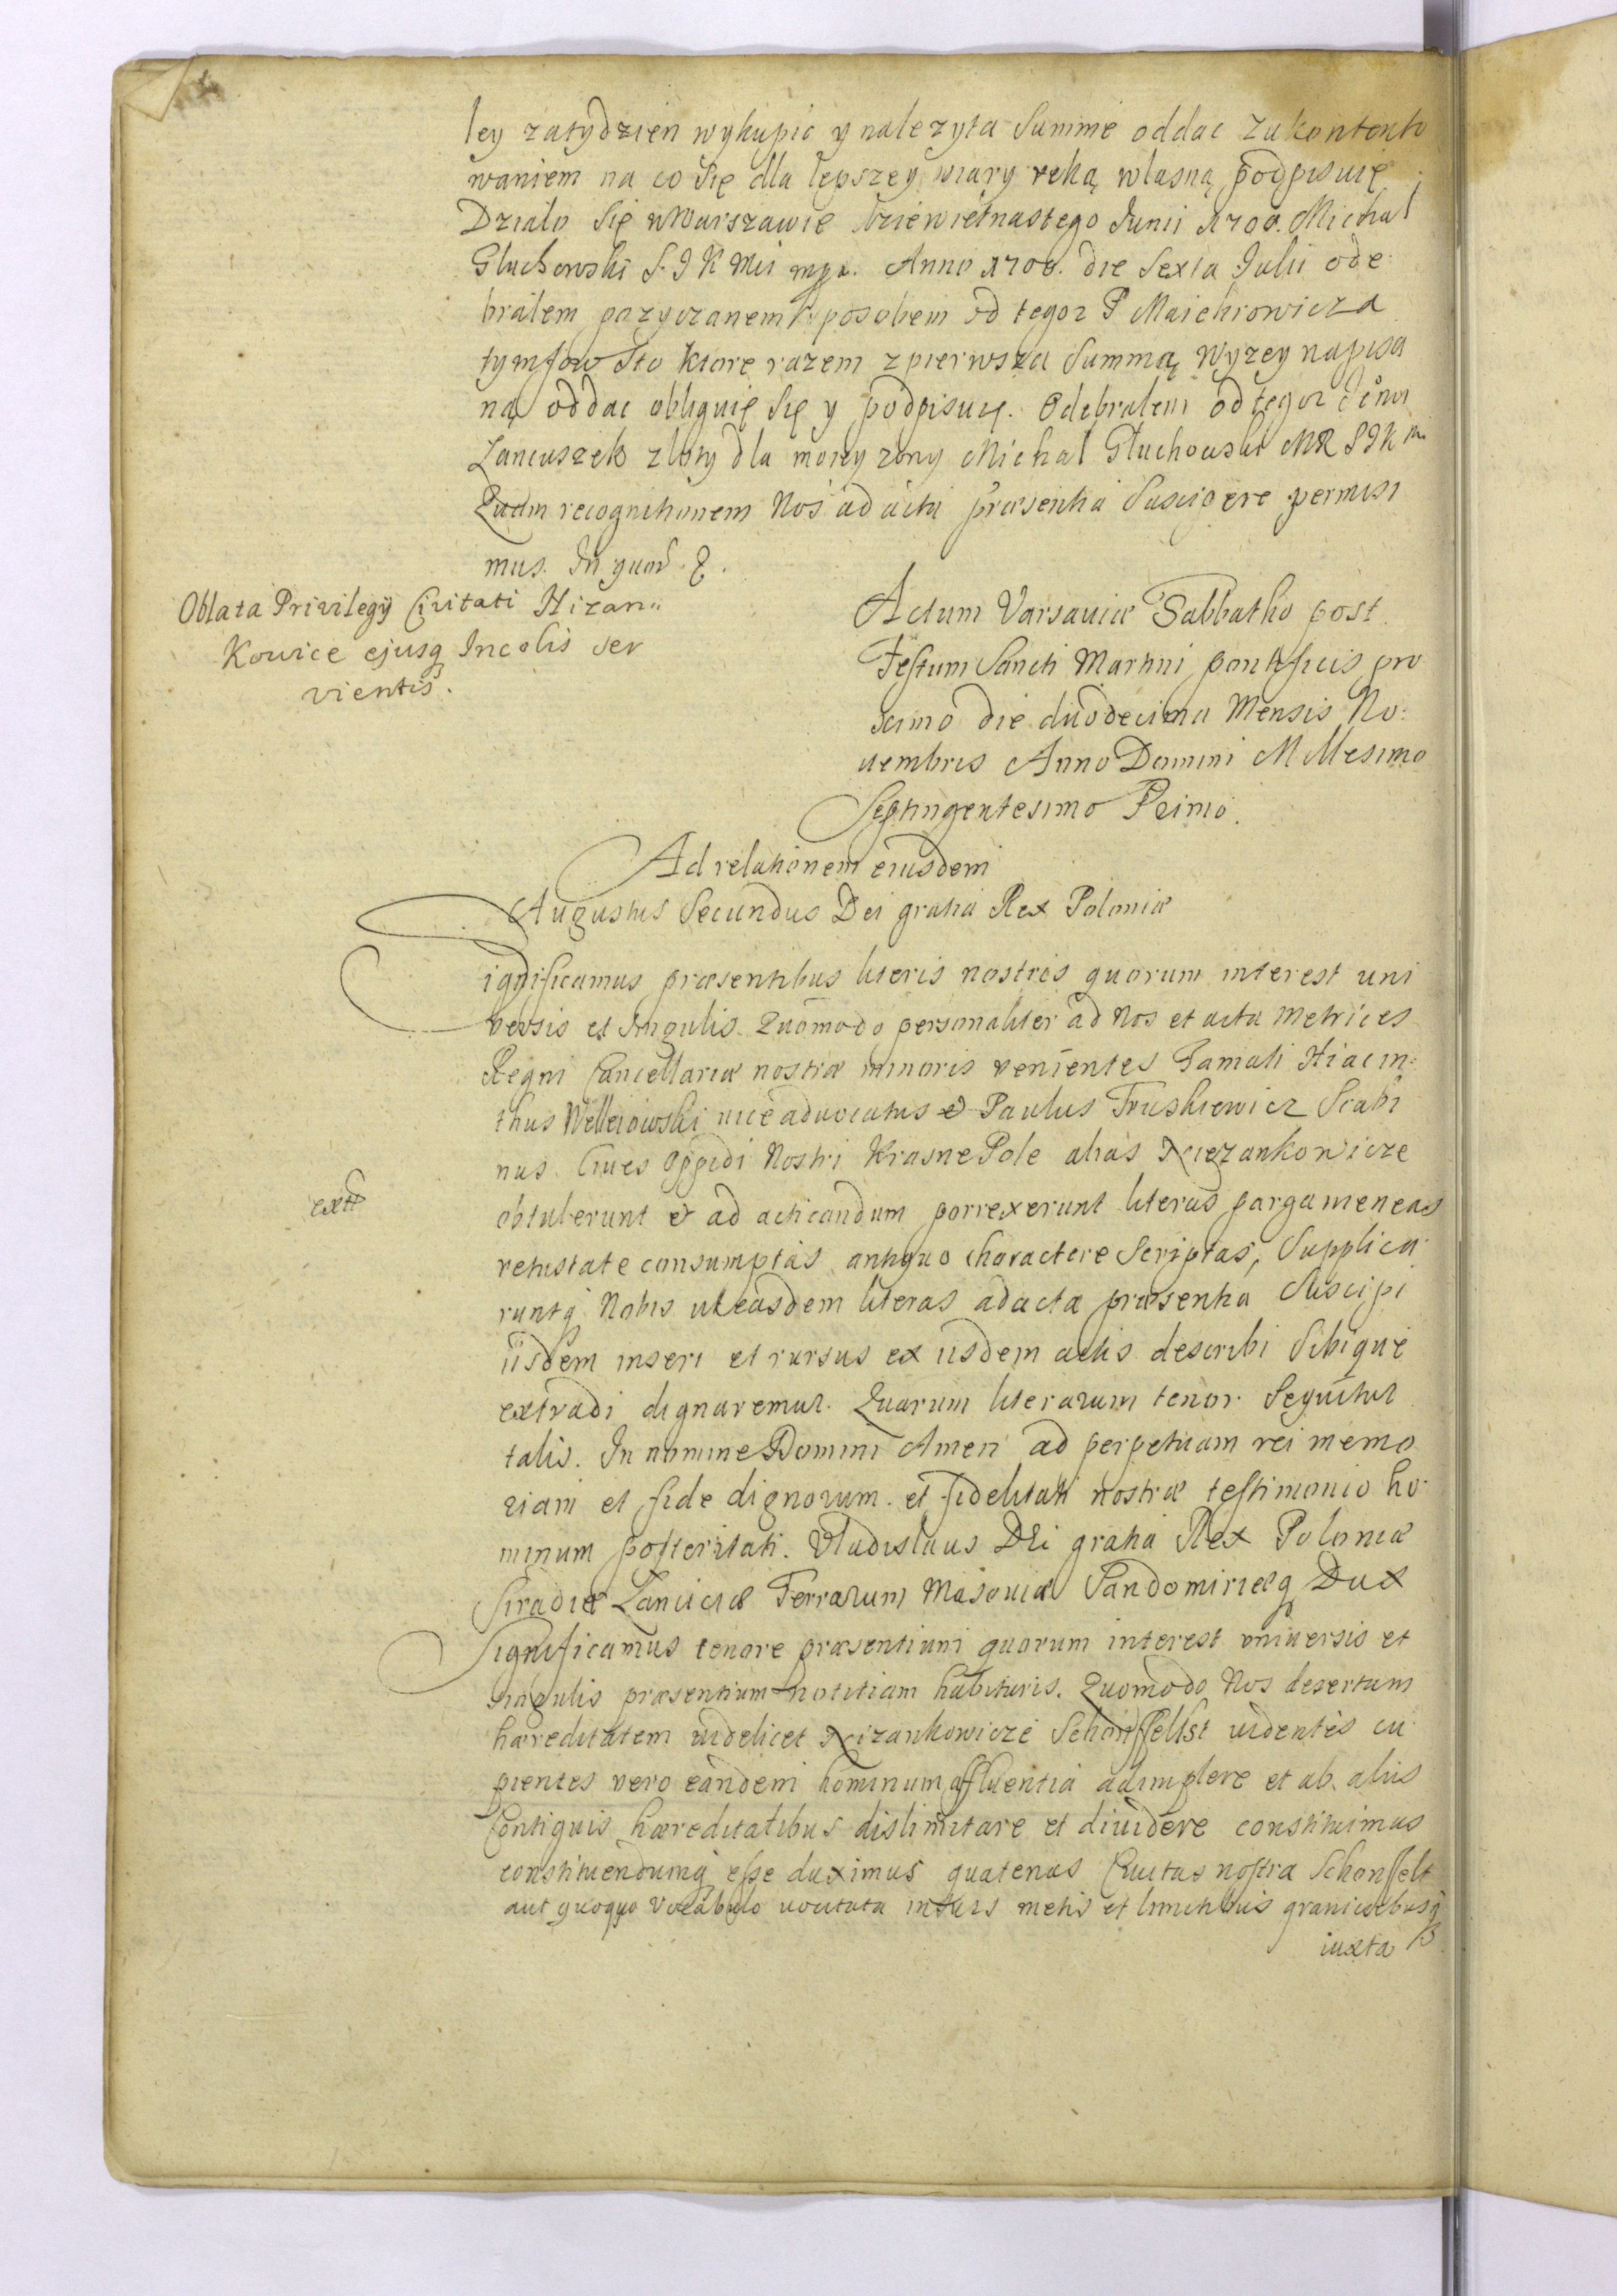 ley zatydzien wykupic y nalezyta Summe oddac zukontento
waniem na co Się dla lepszey wiary reką własną podpisuię
Działo Się w Warszawie dziewietnastego Junii 1700. Michal
Głuchowski S. J K Mci mpa. Anno 1700. die Sexta Julii ode
brałem pozyczanem Sposobem od tegoz P Maichrowicza
tymfow Sto ktore razem z pierwsza Summą wyzey napisa
ną oddac obliguię Się y podpisuię. Odebralem od tegoz
Lancuszek złoty dla moiey zony Michał Głuchowski MR SJK M.
Quam recognitionem Nos ad acta præsentia Suscipere permisi
mus. In quor.
Oblata Privilegij Civitati Hizan=
kowice ejusq Incolis ser
vientis.
Actum Varsaviæ Sabbatho post
Festum Sancti Martini pontificis pro
ximo die duodecima Mensis No:
uembris Anno Domini Millesimo
Septingentesimo Primo.
Ad relationem eiusdem
Augustus Secundus Dei gratia Rex Poloniæ
Significamus præsentibus literis nostris quorum interest uni
versis et Singulis. Quomodo personaliter ad Nos et acta Metrices
Regni Cancellariæ nostræ minoris venientes Famati Hiacin=
thus Welleiowski viceadvocatus & Paulus Truskiewicz Scabi
nus Ciues Oppidi Nostri Krasne Pole alias Nizankowicze
extr
obtulerunt & ad acticandum porrexerunt literas pargameneas
vetustate consumptas antiquo charactere Scriptas, Supplica
runtq Nobis ut easdem literas ad acta præsentia Suscipi
iisdem inseri et rursus ex iisdem actis describi Sibique
extradi dignaremur. Quarum literarum tenor Sequitur
talis. In nomine Domini Amen ad perpetuam rei memo
riam et fide dignorum et fidelitati nostræ testimonio ho
minum posteritati. Vladislaus Dei gratia Rex Poloniæ
Siradiæ Lanciciæ Terrarum Masoviæ Sandomiriæq Dux
Significamus tenore præsentium quorum interest vniuersis et
singulis præsentium notitiam habituris. Quomodo Nos desertam
hæreditatem videlicet Nizankowicze Schönffellst uidentes cu
pientes vero eandem hominum affluentia adimplere et ab aliis
Contiguis hæreditatibus dislimitare et diuidere constituimus
constituendumq esse duximus quatenus Ciuitas nostra Schonffelt
aut quoquo vocabulo uocitata in suis metis et limitibus graniciebusq
iuxta